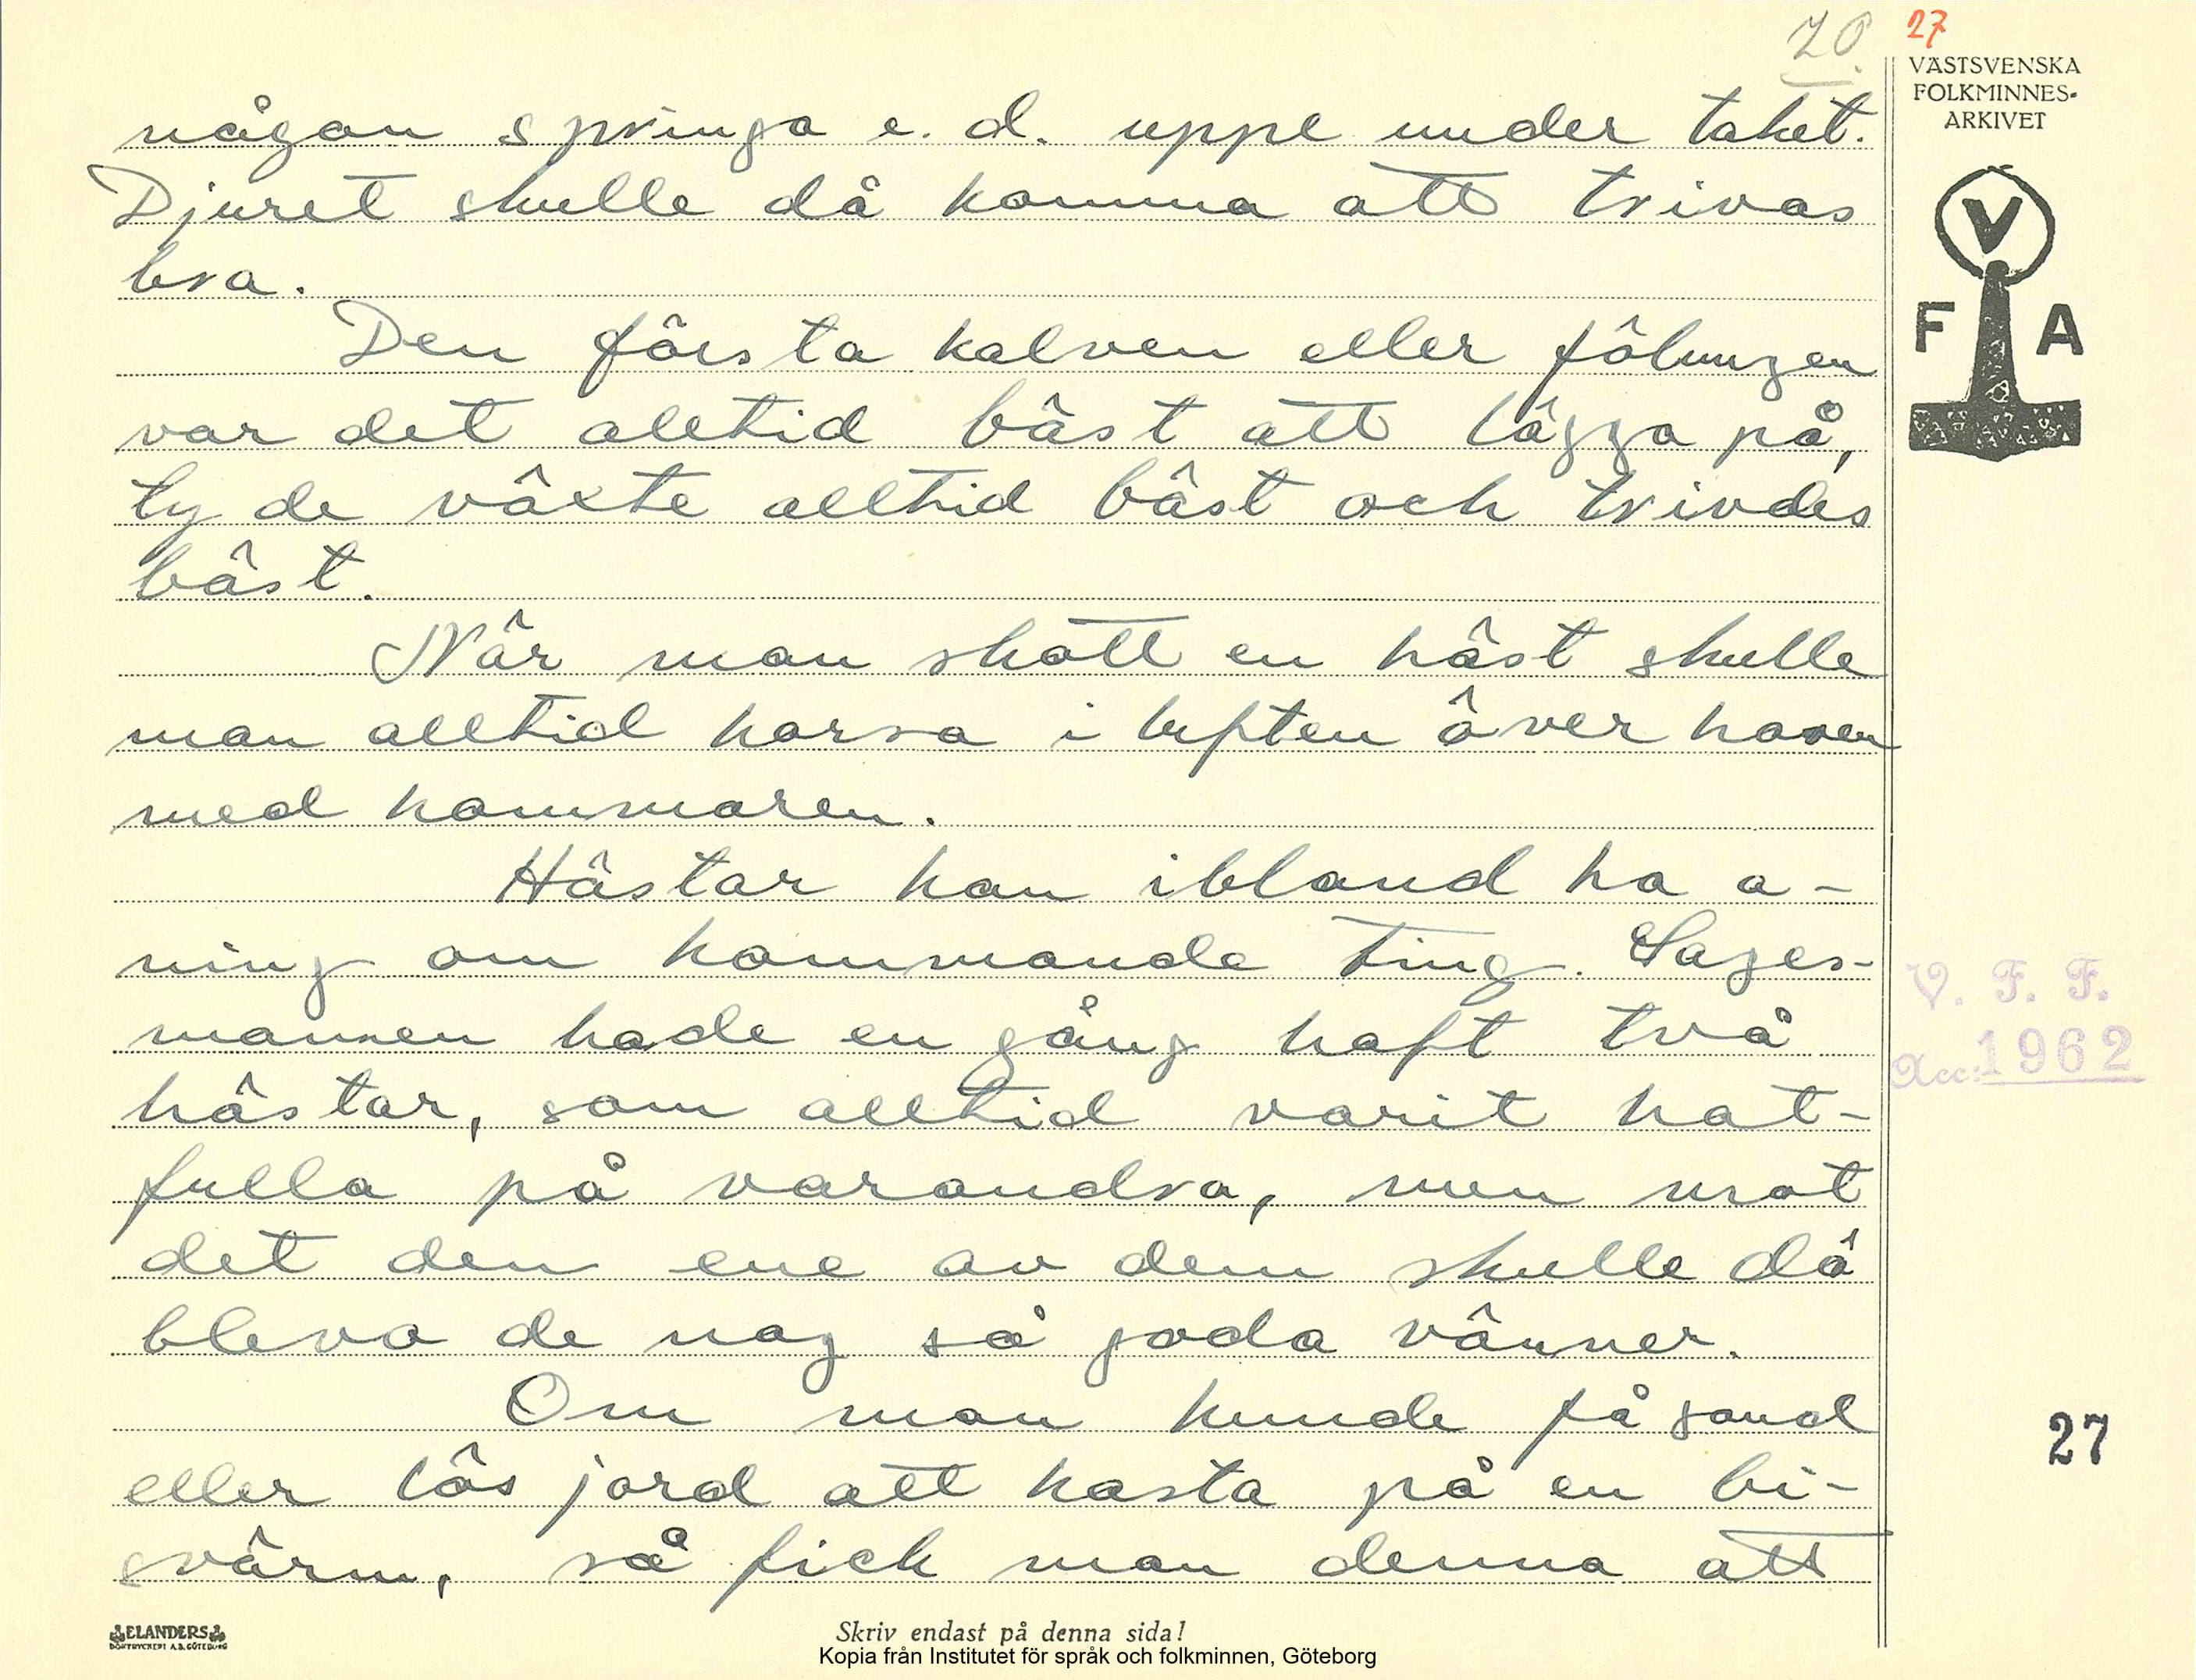 20.
27
VÄSTSVENSKA
FOLKMINNES-
ARKIVET
V
F A
någon springa e. d. uppe under taket.
Djuret skulle då komma att trivas
bra.
Den första kalven eller fölungen
var det alltid bäst att lägga på,
ty de växte alltid bäst och trivdes
bäst.
När man skott en häst skulle
man alltid korsa i luften över hoven
med hammaren.
Hästar kan ibland ha a-
ning om kommande ting. Sages-
mannen hade en gång haft två
hästar, som alltid varit hat-
fulla på varandra, men mot
det den ene av dem skulle dö
bleva de nog så goda vänner.
Om man kunde få sand
eller lös jord att kasta på en bi-
svärm, så fick man denna att
V. F. F.
Acc: 1962
27
ELANDERS
BOKTRYCKERI A.B. GÖTEBORG
Skriv endast på denna sida!
Kopia från Institutet för språk och folkminnen, Göteborg